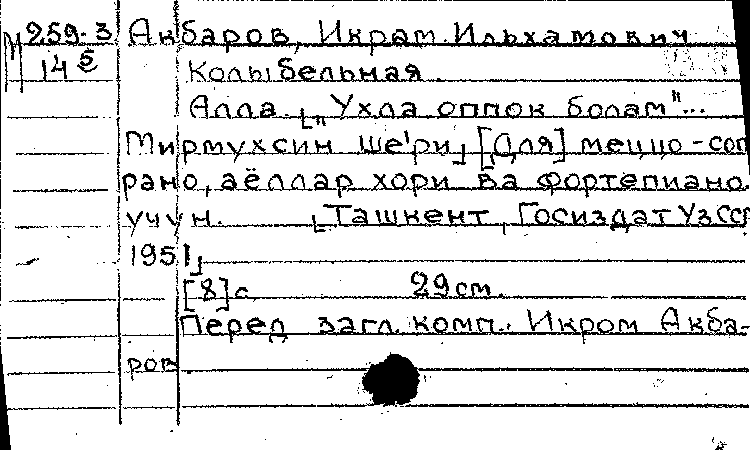 М 259-3
14⁵
Акбаров, Икрам Ильхамович
Колыбельная.
Алла. „Ухла оппок болам"...
Мирмухсин ше'ри」 [Для] меццо-соп
рано, аёллар хори ва фортепиано
учун. Ташкент, Госиздат УзССР
1951」
[8] с 29 см.
Перед загл. комп.: Икром Акба-
ров